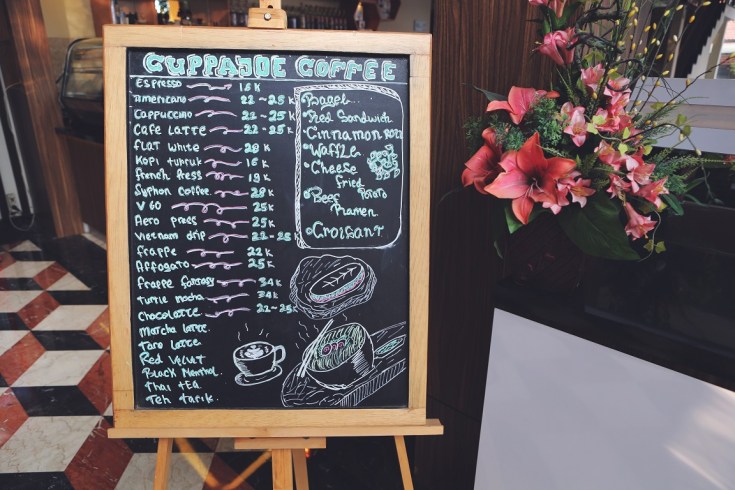 CUPPAJOE COFFEE
Espresso 18k
Americano 22 - 25k
Cappuccino 22 - 25k
Cafe Latte 22 - 25k
Flat White 28k
Kopi Tubruk 18k
French Press 19k
Syphon Coffee 28k
V60 25k
Aero press 25k
Vietnam drip 22 - 25k
Frappe 22k
Affogato 25k
Frappe Fantasy 34k
Turtle Mocha 34k
Chocolatte 22 - 25k
Matcha Latte
Taro Latte
Red Velvet
Black Menthol
Thai tea
Teh tarik
Bagel
Red Sandwich
Cinnamon Roll
Waffle
Cheese
Fried Potato
Beef
Ramen
Croisant